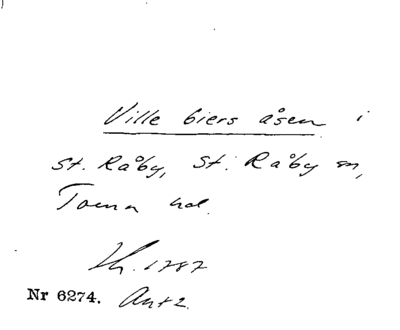 Ville biers åsen i
St. Råby, St. Råby sn,
Torna hd.
Th. 1787
Nr 6274. Ant 2.